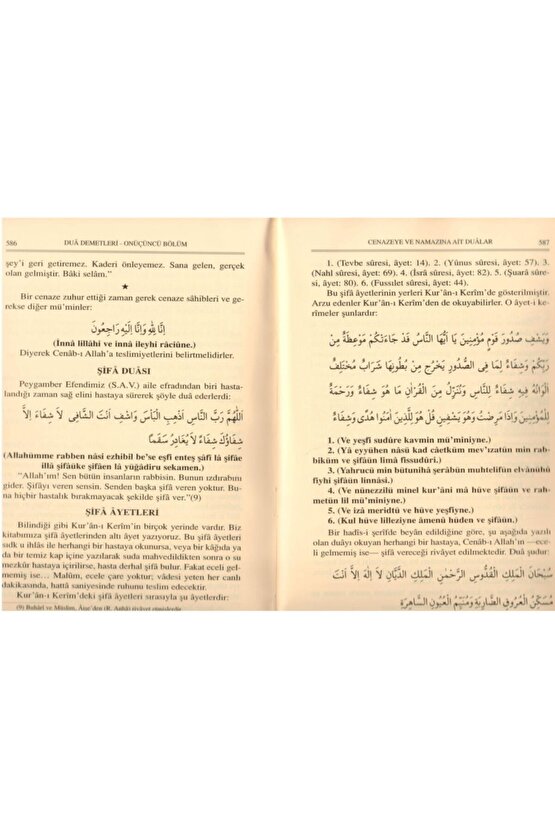 586 DUÂ DEMETLERİ - ONÜÇÜNCÜ BÖLÜM
şey'i geri getiremez. Kaderi önleyemez. Sana gelen, gerçek
olan gelmiştir. Bâki selâm."
★
Bir cenaze zuhur ettiği zaman gerek cenaze sâhibleri ve ge-
rekse diğer mü'minler:
اِنَّا لِلّٰهِ وَاِنَّا اِلَيْهِ رَاجِعُونَ
(İnnâ lillâhi ve innâ ileyhi râciûne.)
Diyerek Cenâb-ı Allah'a teslimiyetlerini belirtmelidirler.
ŞİFÂ DUÂSI
Peygamber Efendimiz (S.A.V.) aile efradından biri hasta-
landığı zaman sağ elini hastaya sürerek şöyle duâ ederlerdi:
اَللّٰهُمَّ رَبَّ النَّاسِ اَذْهِبِ الْبَأْسَ وَاشْفِ اَنْتَ الشَّافِى لاَ شِفَاءَ اِلاَّ
شِفَاؤُكَ شِفَاءً لاَ يُغَادِرُ سَقَمًا
(Allahümme rabben nâsi ezhibil be'se eşfi enteş şâfi lâ şifâe
illâ şifâüke şifâen lâ yûgâdiru sekamen.)
"Allah'ım! Sen bütün insanların rabbisin. Bunun ızdırabını
gider. Şifâyı veren sensin. Senden başka şifâ veren yoktur. Bu-
na hiçbir hastalık bırakmayacak şekilde şifâ ver."(9)
ŞİFÂ ÂYETLERİ
Bilindiği gibi Kur'ân-ı Kerîm'in birçok yerinde vardır. Biz
kitabımıza şifâ âyetlerinden altı âyet yazıyoruz. Bu şifâ âyetleri
sıdk u ihlâs ile herhangi bir hastaya okunursa, veya bir kâğıda ya
da bir temiz kap içine yazılarak suda mahvedildikten sonra o su
mezkûr hastaya içirilirse, hasta derhal şifâ bulur. Fakat eceli gel-
memiş ise... Malûm, ecele çare yoktur; vâdesi yeten her canlı
dakikasında, hattâ saniyesinde ruhunu teslim edecektir.
Kur'ân-ı Kerîm'deki şifâ âyetleri sırasıyla şu âyetlerdir:
(9) Buhârî ve Müslim, Âişe'den
CENAZEYE VE NAMAZINA AİT DUÂLAR 587
1. (Tevbe sûresi, âyet: 14). 2. (Yûnus sûresi, âyet: 57). 3.
(Nahl sûresi, âyet: 69). 4. (İsrâ sûresi, âyet: 82). 5. (Şuarâ sûre-
si, âyet: 80). 6. (Fussılet sûresi, âyet: 44).
Bu şifâ âyetlerinin yerleri Kur'ân-ı Kerîm'de gösterilmiştir.
Arzu edenler Kur'ân-ı Kerîm'den de okuyabilirler. O âyet-i ke-
rîmeler şunlardır:
وَيَشْفِ صُدُورَ قَوْمٍ مُؤْمِنِينَ يَا اَيُّهَا النَّاسُ قَدْ جَاءَتْكُمْ مَوْعِظَةٌ مِنْ
رَبِّكُمْ وَشِفَاءٌ لِمَا فِى الصُّدُورِ يَخْرُجُ مِنْ بُطُونِهَا شَرَابٌ مُخْتَلِفٌ
اَلْوَانُهُ فِيهِ شِفَاءٌ لِلنَّاسِ وَنُنَزِّلُ مِنَ الْقُرْآنِ مَا هُوَ شِفَاءٌ وَرَحْمَةٌ
لِلْمُؤْمِنِينَ وَاِذَا مَرِضْتُ وَهُوَ يَشْفِينِ قُلْ هُوَ لِلَّذِينَ آمَنُوا هُدًى وَشِفَاءٌ
1. (Ve yeşfi sudûre kavmin mü'miniyne.)
2. (Yâ eyyühen nâsü kad câetküm mev'ızatün min rab-
biküm ve şifâün limâ fissudûri.)
3. (Yahrucü min bütunihâ şerâbün muhtelifün elvânühû
fiyhi şifâün linnâsi.)
4. (Ve nünezzilü minel kur'âni mâ hüve şifâün ve rah-
metün lil mü'miniyne.)
5. (Ve izâ meridtü ve hüve yeşfiyne.)
6. (Kul hüve lilleziyne âmenû hüden ve şifâün.)
Bir hadîs-i şerîfde beyân edildiğine göre, şu aşağıda yazılı
olan duâyı okuyan herhangi bir hastaya, Cenâb-ı Allah'ın —ece-
li gelmemiş ise— şifâ vereceği rivâyet edilmektedir. Duâ şudur:
سُبْحَانَ الْمَلِكِ الْقُدُّوسِ الرَّحْمٰنِ الْمَلِكِ الدَّيَّانِ لاَ اِلٰهَ اِلاَّ اَنْتَ
مُسَكِّنُ الْعُرُوقِ الضَّارِبَةِ وَمُنِيمُ الْعُيُونِ السَّاهِرَةِ